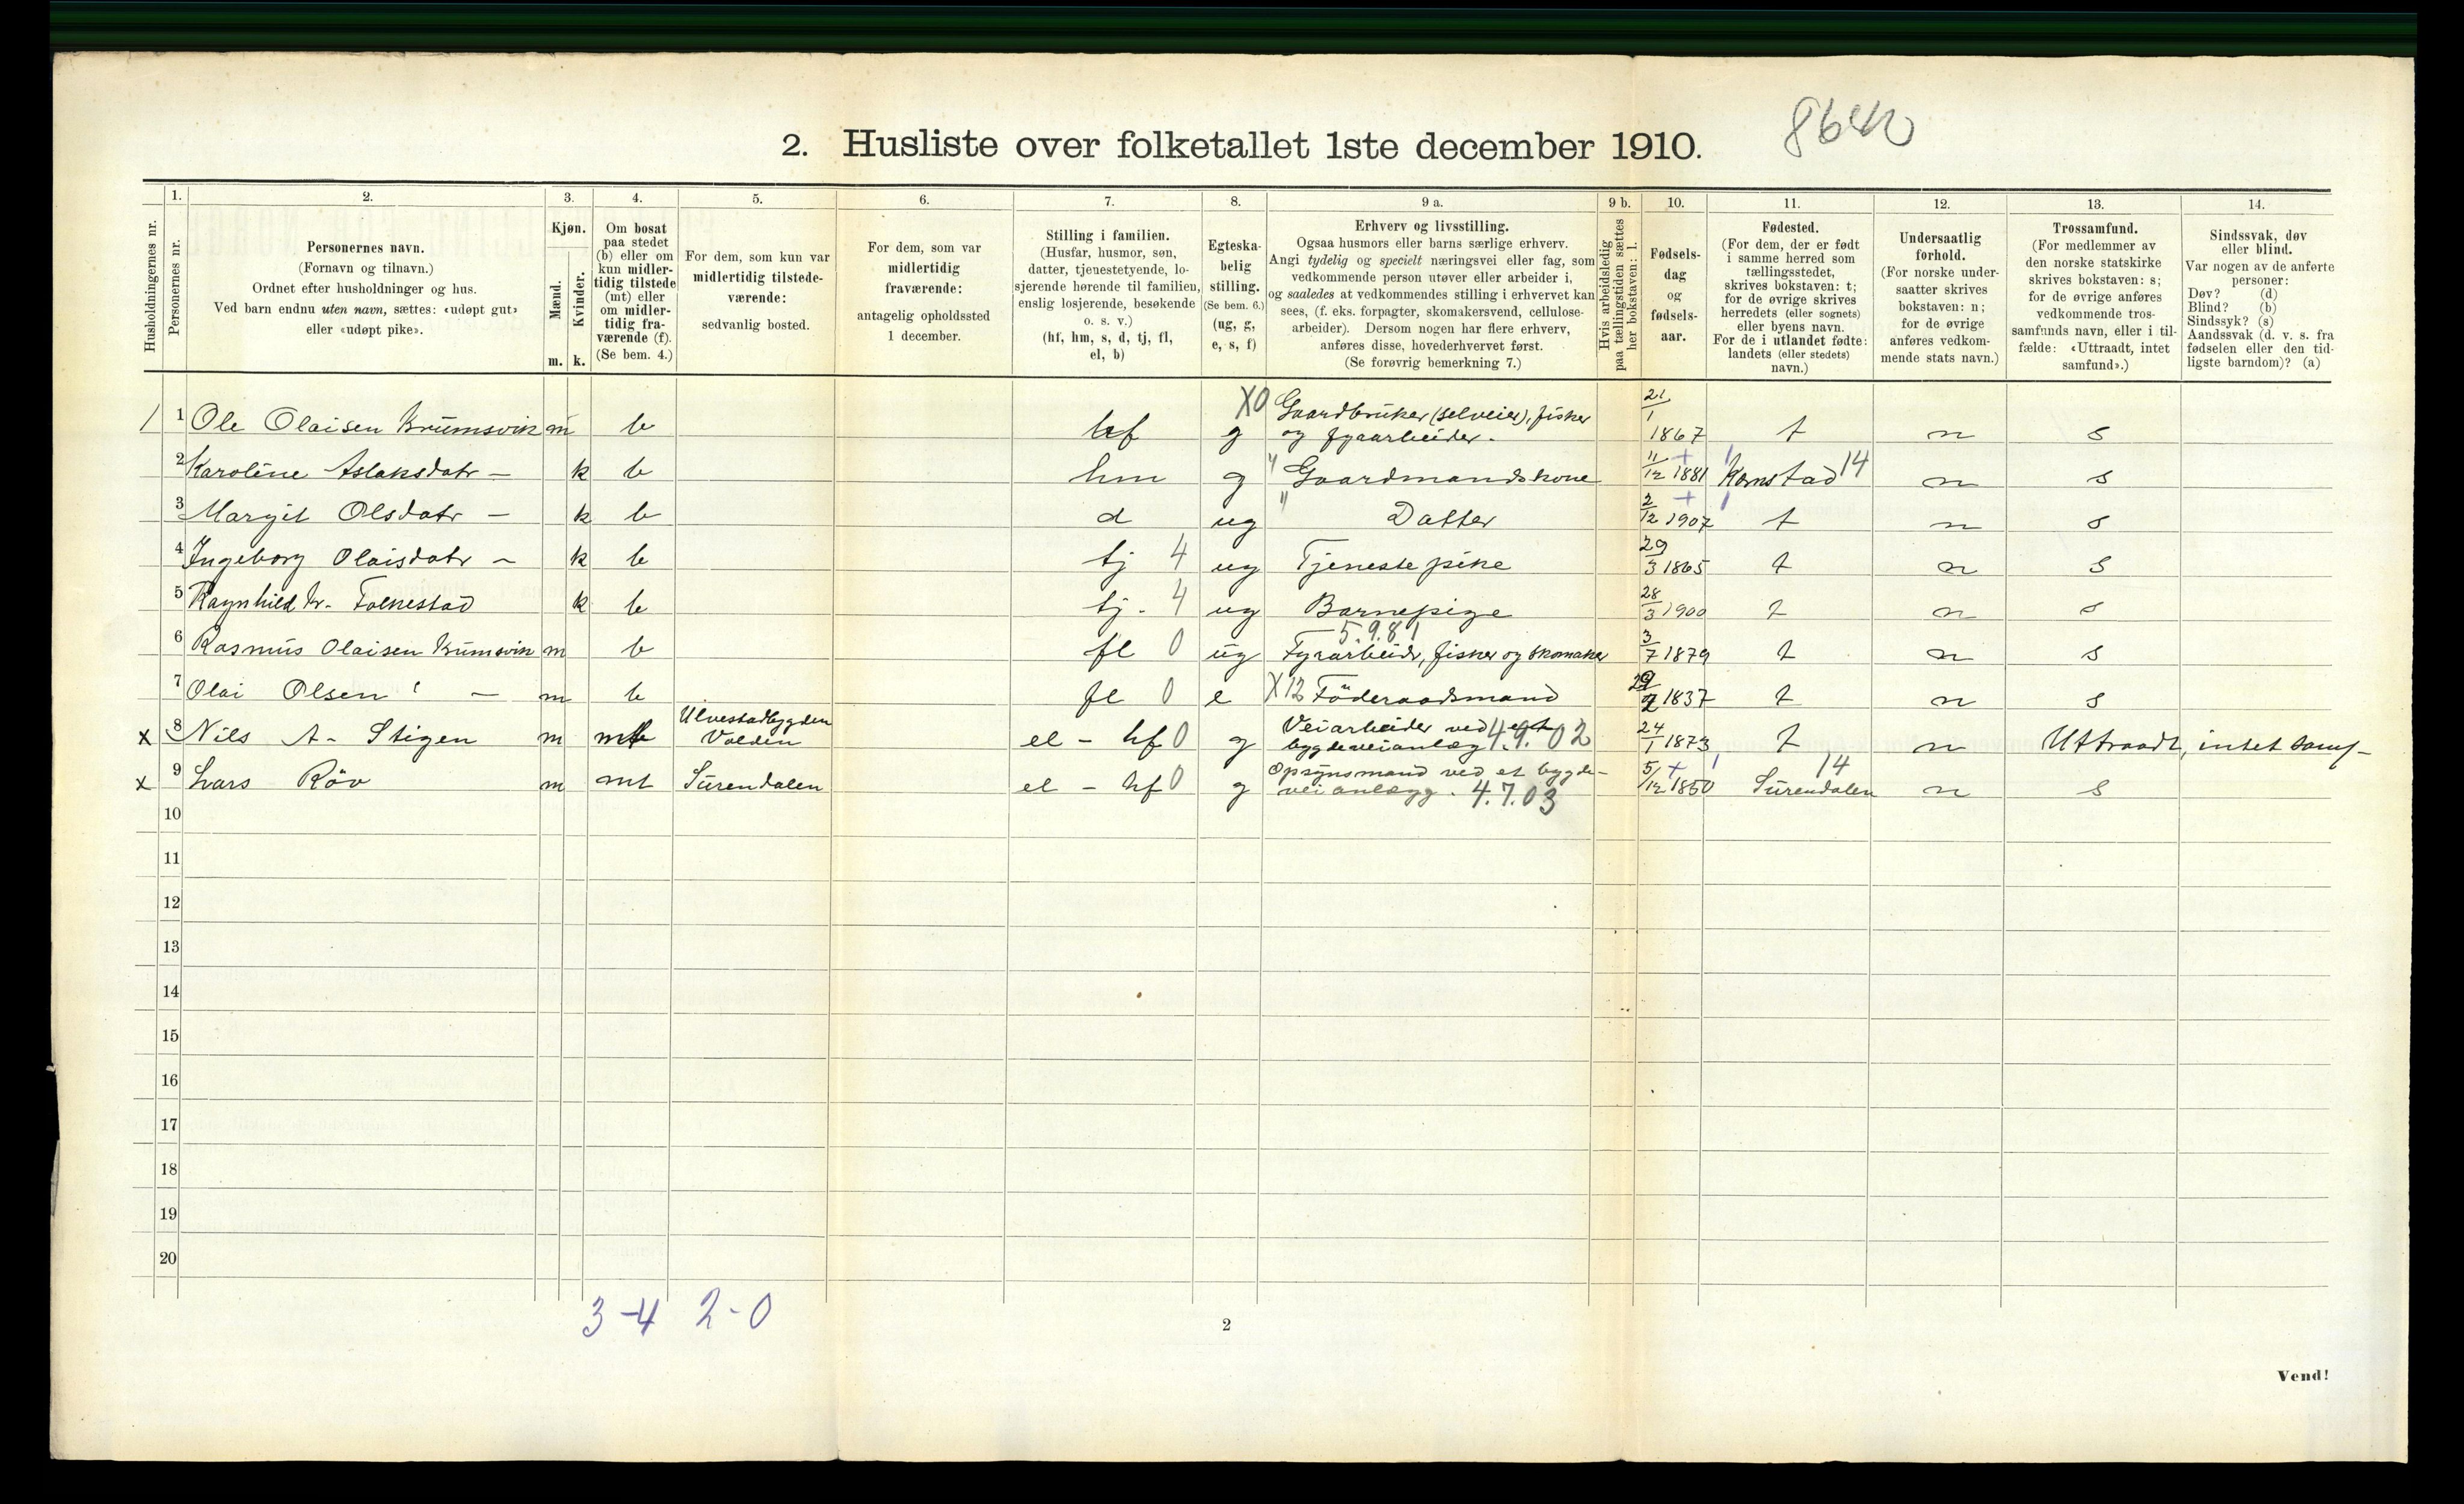 8640
2. Husliste over folketallet 1ste december 1910.
Husholdningernes nr.
1.
Personernes nr.
2.
Personernes navn.
(Fornavn og tilnavn.)
Ordnet efter husholdninger og hus.
Ved barn endnu uten navn, sættes: «udøpt gut»
eller «udøpt pike».
3.
Kjøn.
Mænd.
Kvinder.
m. k.
4.
Om bosat
paa stedet
(b) eller om
kun midler-
tidig tilstede
(mt) eller
om midler-
tidig fra-
værende (f).
(Se bem. 4.)
5.
For dem, som kun var
midlertidig tilstede-
værende:
sedvanlig bosted.
6.
For dem, som var
midlertidig
fraværende:
antagelig opholdssted
1 december.
7.
Stilling i familien.
(Husfar, husmor, søn,
datter, tjenestetyende, lo-
sjerende hørende til familien,
enslig losjerende, besøkende
o. s. v.)
(hf, hm, s, d, tj, fl,
el, b)
8.
Egteska-
belig
stilling.
(Se bem. 6.)
(ug, g,
e, s, f)
9 a.
Erhverv og livsstilling.
Ogsaa husmors eller barns særlige erhverv.
Angi tydelig og specielt næringsvei eller fag, som
vedkommende person utøver eller arbeider i,
og saaledes at vedkommendes stilling i erhvervet kan
sees, (f. eks. forpagter, skomakersvend, cellulose-
arbeider). Dersom nogen har flere erhverv,
anføres disse, hovederhvervet først.
(Se forøvrig bemerkning 7.)
9 b.
Hvis arbeidsledig
paa tællingstiden sættes
her bokstaven: l.
10.
Fødsels-
dag
og
fødsels-
aar.
11.
Fødested.
(For dem, der er født
i samme herred som
tællingsstedet,
skrives bokstaven: t;
for de øvrige skrives
herredets (eller sognets)
eller byens navn.
For de i utlandet fødte:
landets (eller stedets)
navn.)
12.
Undersaatlig
forhold.
(For norske under-
saatter skrives
bokstaven: n;
for de øvrige
anføres vedkom-
mende stats navn.)
13.
Trossamfund.
(For medlemmer av
den norske statskirke
skrives bokstaven: s;
for de øvrige anføres
vedkommende tros-
samfunds navn, eller i til-
fælde: «Uttraadt, intet
samfund».)
14.
Sindssvak, døv
eller blind.
Var nogen av de anførte
personer:
Døv? (d)
Blind? (b)
Sindssyk? (s)
Aandssvak (d. v. s. fra
fødselen eller den tid-
ligste barndom)? (a)
1 1 Ole Olaisen Brumsvik m b hf g X0 Gaardbruker (selveier), fisker
og fyraarbeider. 21/1 1867 t n s
2 Karoline Aslaksdatr - k b hm g " Gaardmandskone 11/12 1881 Kornstad 14 n s
3 Margit Olsdatr - k b d ug " Datter 2/12 1907 t n s
4 Ingeborg Olaisdatr - k b tj 4 ug Tjenestepike 29/3 1865 t n s
5 Ragnhild Folkestad k b tj. 4 ug Barnepige 28/3 1900 t n s
5.9.81
6 Rasmus Olaisen Brumsvik m b fl 0 ug Fyraarbeidr, fisker og skomaker 3/7 1879 t n s
7 Olai Olsen - m b fl 0 e X12 Föderaadsmand 29 1837 t n s
x 8 Nils A- Stigen m mt Ulvestadbygden
Volden el - hf 0 g Veiarbeider ved et
bygdeveianlæg 4.9.02 24/1 1873 t n Uttraadt, intet samf-
x 9 Lars Röv m mt Surendalen el - hf 0 g Opsynsmand ved et bygde-
veianlægg. 4.7.03 5/12 1850 Surendalen 14 n s
10
11
12
13
14
15
16
17
18
19
20
3-4 2-0
2
Vend!